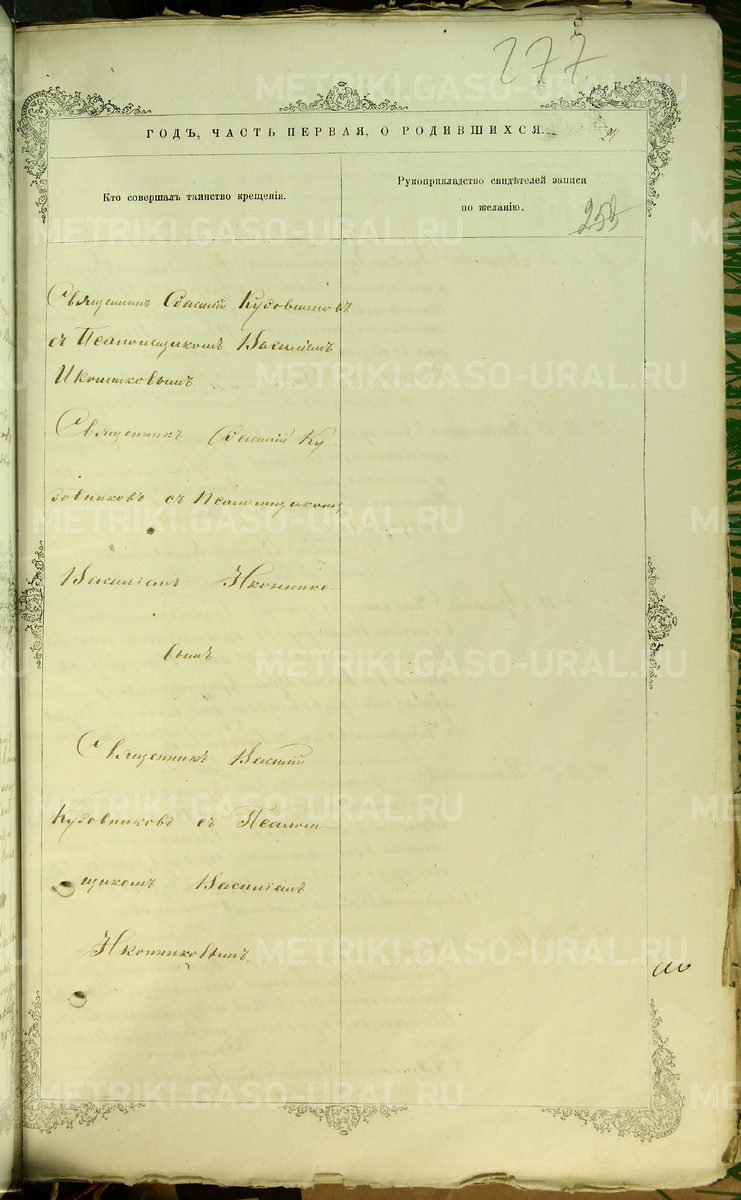 277
ГОДЪ, ЧАСТЬ ПЕРВАЯ, О РОДИВШИХСЯ.
21
Кто совершалъ таинство крещенія.
Рукоприкладство свидѣтелей записи
по желанію.
255
Священникъ Васілій Кубовниковъ
съ Псаломщикомъ Василіемъ
Иконниковымъ.
Священникъ Васілій Ку
бовниковъ съ Псаломщикомъ
Василіемъ Иконнико-
вымъ
Священникъ Васілій
Кубовниковъ съ Псалом-
щикомъ Василіемъ
Иконниковымъ.
METRIKI.GASO-URAL.RU